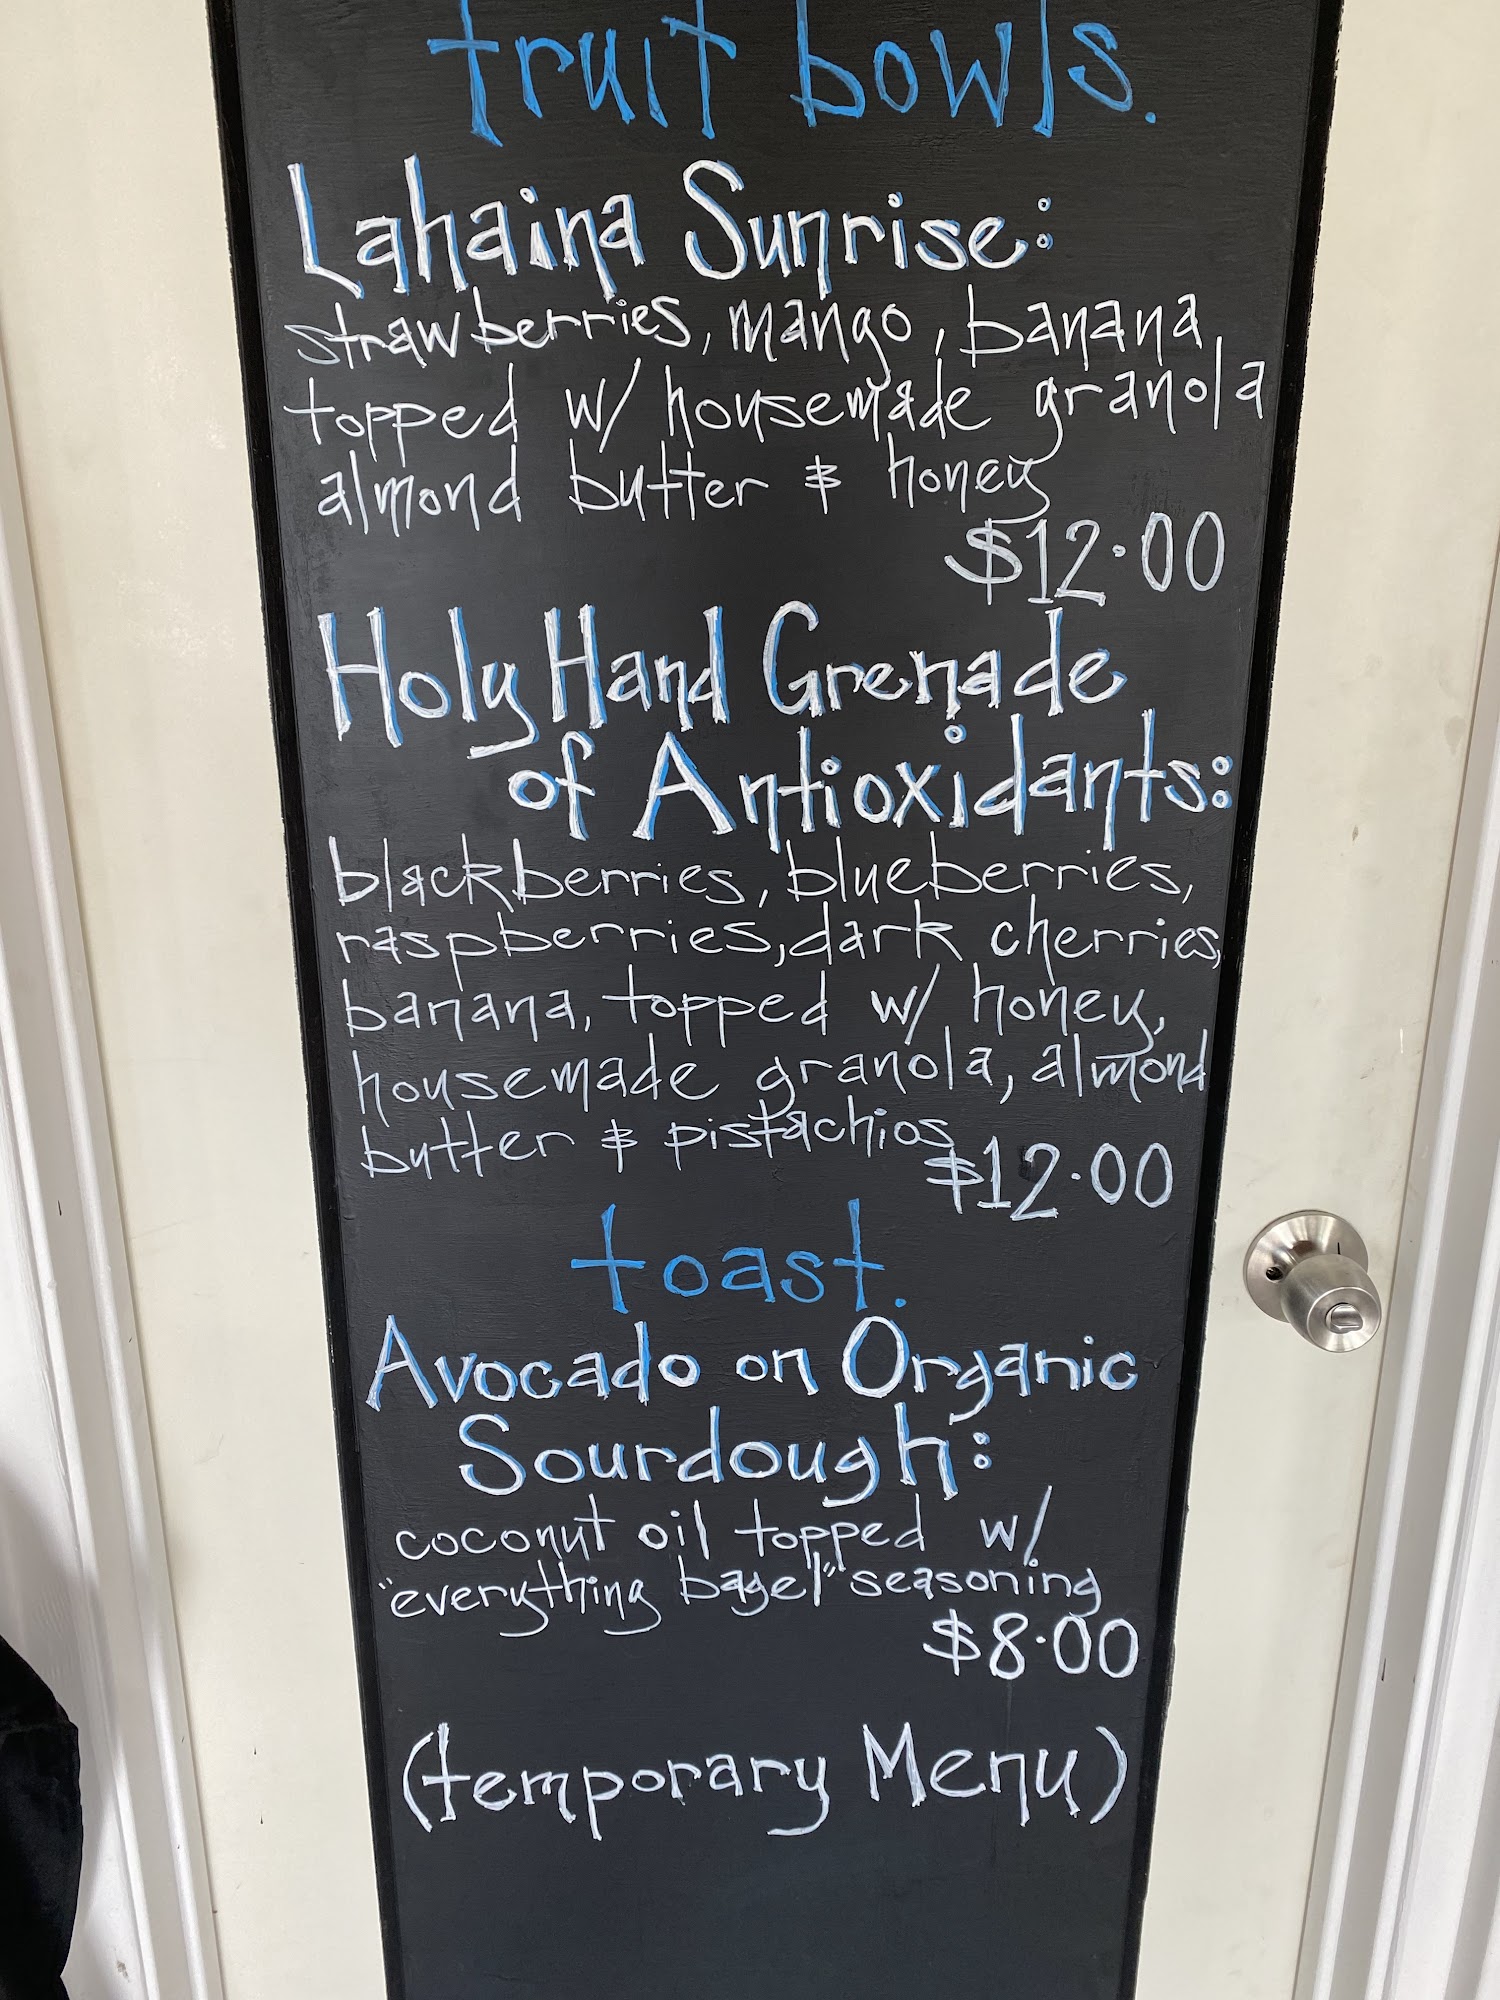 fruit bowls.
Lahaina Sunrise:
strawberries, mango, banana
topped w/ housemade granola
almond butter & honey
$12.00
Holy Hand Grenade
of Antioxidants:
blackberries, blueberries,
raspberries, dark cherries,
banana, topped w/ honey,
housemade granola, almond
butter & pistachios
$12.00
toast.
Avocado on Organic
Sourdough:
coconut oil topped w/
"everything bagel" seasoning
$8.00
(temporary Menu)